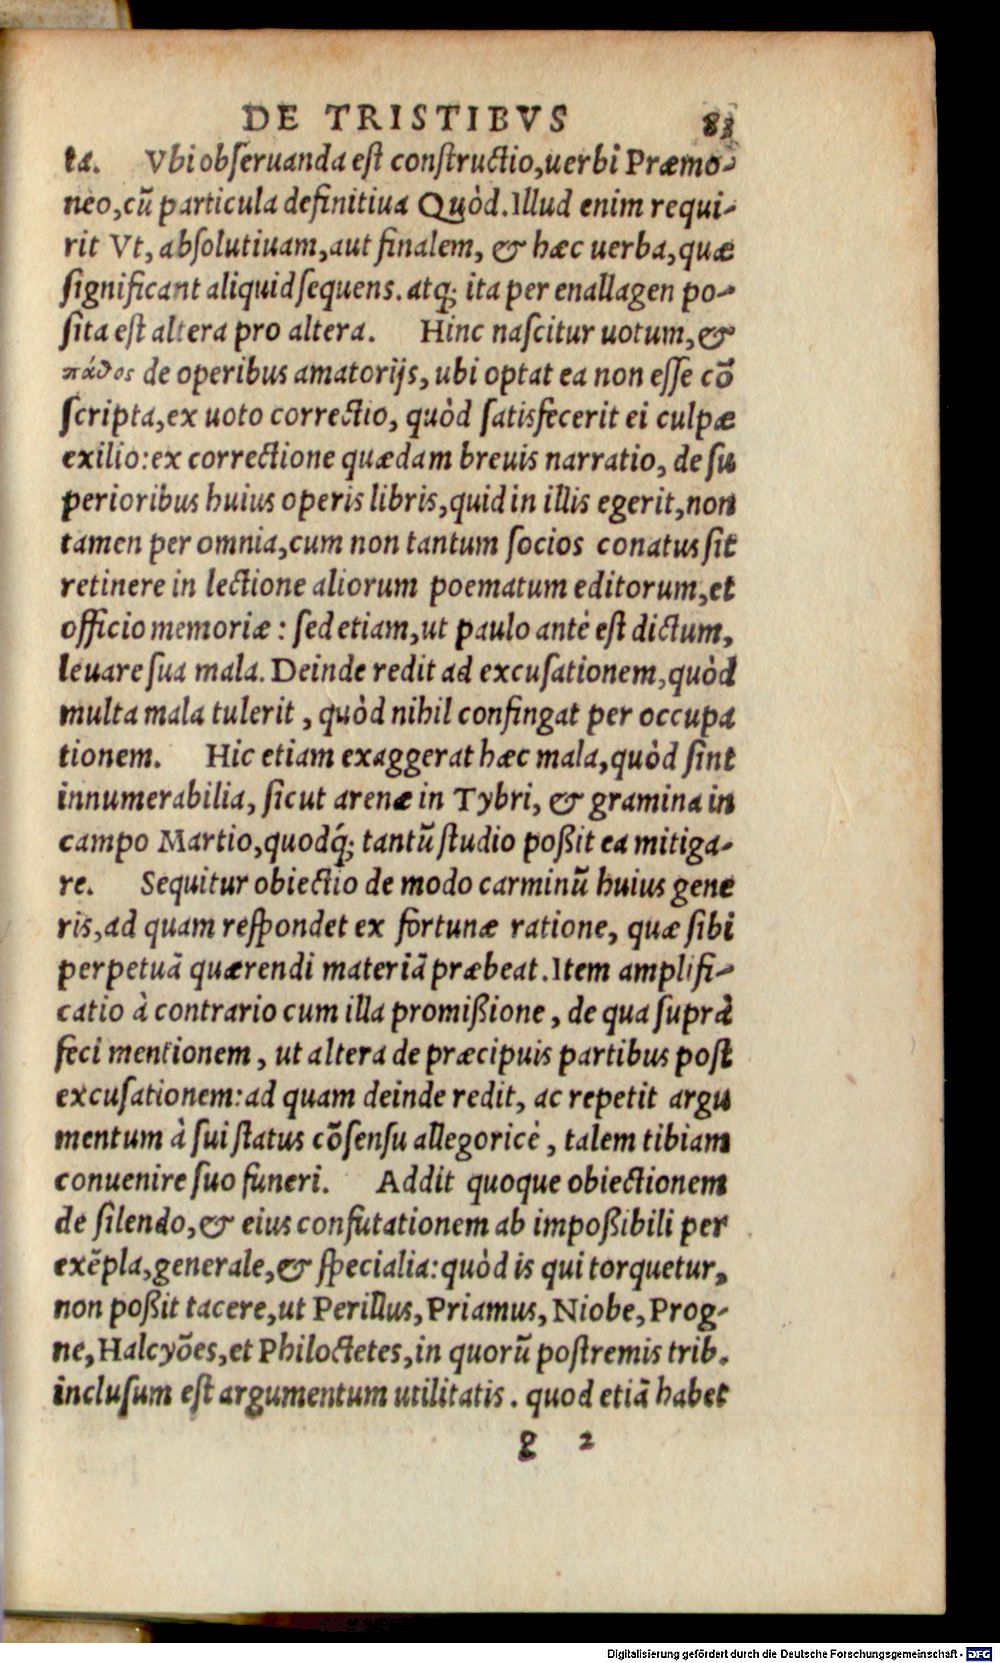 DE TRISTIBVS 83
ta. Vbi obſeruanda eſt conſtructio, uerbi Præmo-
neo, cũ particula definitiua Quòd. Illud enim requi-
rit Vt, abſolutiuam, aut finalem, & hæc uerba, quæ
ſignificant aliquid ſequens. atq; ita per enallagen po-
ſita eſt altera pro altera. Hinc naſcitur uotum, &
πάθος de operibus amatorijs, ubi optat ea non eſſe cõ
ſcripta, ex uoto correctio, quòd ſatisfecerit ei culpæ
exilio: ex correctione quædam breuis narratio, de ſu
perioribus huius operis libris, quid in illis egerit, non
tamen per omnia, cum non tantum ſocios conatus ſit
retinere in lectione aliorum poematum editorum, et
officio memoriæ: ſed etiam, ut paulo antè eſt dictum,
leuare ſua mala. Deinde redit ad excuſationem, quòd
multa mala tulerit, quòd nihil confingat per occupa
tionem. Hic etiam exaggerat hæc mala, quòd ſint
innumerabilia, ſicut arenæ in Tybri, & gramina in
campo Martio, quodq́; tantũ ſtudio poßit ea mitiga-
re. Sequitur obiectio de modo carminũ huius gene
ris, ad quam reſpondet ex fortunæ ratione, quæ ſibi
perpetuã quærendi materiã præbeat. Item amplifi-
catio à contrario cum illa promißione, de qua ſuprà
feci mentionem, ut altera de præcipuis partibus poſt
excuſationem: ad quam deinde redit, ac repetit argu
mentum à ſui ſtatus cõſenſu allegoricè, talem tibiam
conuenire ſuo funeri. Addit quoque obiectionem
de ſilendo, & eius confutationem ab impoßibili per
exẽpla, generale, & ſpecialia: quòd is qui torquetur,
non poßit tacere, ut Perillus, Priamus, Niobe, Prog-
ne, Halcyões, et Philoctetes, in quorũ poſtremis trib.
incluſum eſt argumentum utilitatis. quod etiã habet
g 2
Digitalisierung gefördert durch die Deutsche Forschungsgemeinschaft - DFG